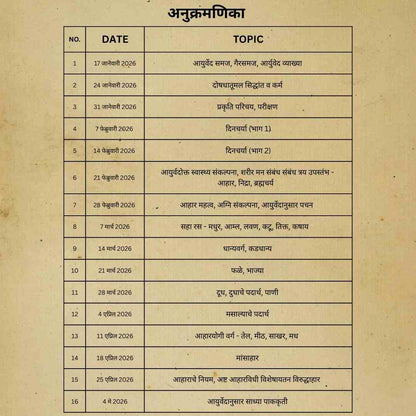 अनुक्रमणिका
NO. DATE TOPIC
1 17 जानेवारी 2026 आयुर्वेद समज, गैरसमज, आर्युवेद व्याख्या
2 24 जानेवारी 2026 दोषधातूमल सिद्धांत व कर्म
3 31 जानेवारी 2026 प्रकृति परिचय, परीक्षण
4 7 फेब्रुवारी 2026 दिनचर्या (भाग 1)
5 14 फेब्रुवारी 2026 दिनचर्या (भाग 2)
6 21 फेब्रुवारी 2026 आयुर्वदोक्त स्वास्थ्य संकल्पना, शरीर मन संबंध संबंध त्रय उपस्तंभ -
आहार, निद्रा, ब्रह्मचर्य
7 28 फेब्रुवारी 2026 आहार महत्व, अग्नि संकल्पना, आयुर्वेदानुसार पचन
8 7 मार्च 2026 सहा रस - मधुर, आम्ल, लवण, कटू, तिक्त, कषाय
9 14 मार्च 2026 धान्यवर्ग, कडधान्य
10 21 मार्च 2026 फळे, भाज्या
11 28 मार्च 2026 दूध, दुधाचे पदार्थ, पाणी
12 4 एप्रिल 2026 मसाल्याचे पदार्थ
13 11 एप्रिल 2026 आहारयोगी वर्ग - तेल, मीठ, साखर, मध
14 18 एप्रिल 2026 मांसाहार
15 25 एप्रिल 2026 आहाराचे नियम, अष्ट आहारविधी विशेषायतन विरुद्धाहार
16 4 मे 2026 आयुर्वेदानुसार साध्या पाककृती